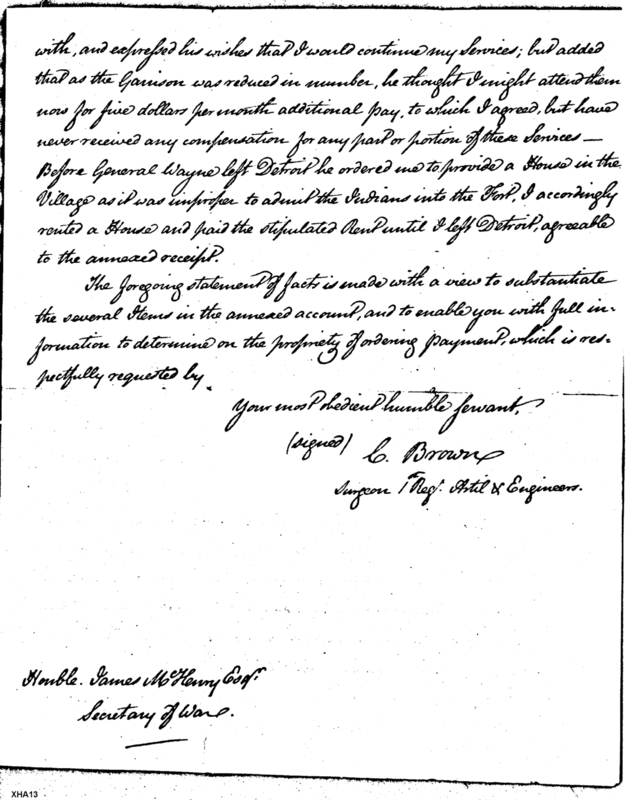 with, and expressed his wishes that I would continue my Services; but added
that as the Garrison was reduced in number, he thought I might attend them
now for five dollars per month additional pay, to which I agreed, but have
never received any compensation for any part or portion of these Services —
Before General Wayne left Detroit he ordered me to provide a House in the
Village as it was improper to admit the Indians into the Fort, I accordingly
rented a House and paid the stipulated Rent until I left Detroit, agreeable
to the annexed receipt.
The foregoing statement of facts is made with a view to substantiate
the several Items in the annexed account, and to enable you with full in-
formation to determine on the propriety of ordering payment, which is res-
pectfully requested by.
Your most obedient humble Servant,
(signed) C. Brown
Surgeon 1st Regt. Artil & Engineers.
Honble. James McHenry Esqr.
Secretary of War.
XHA13